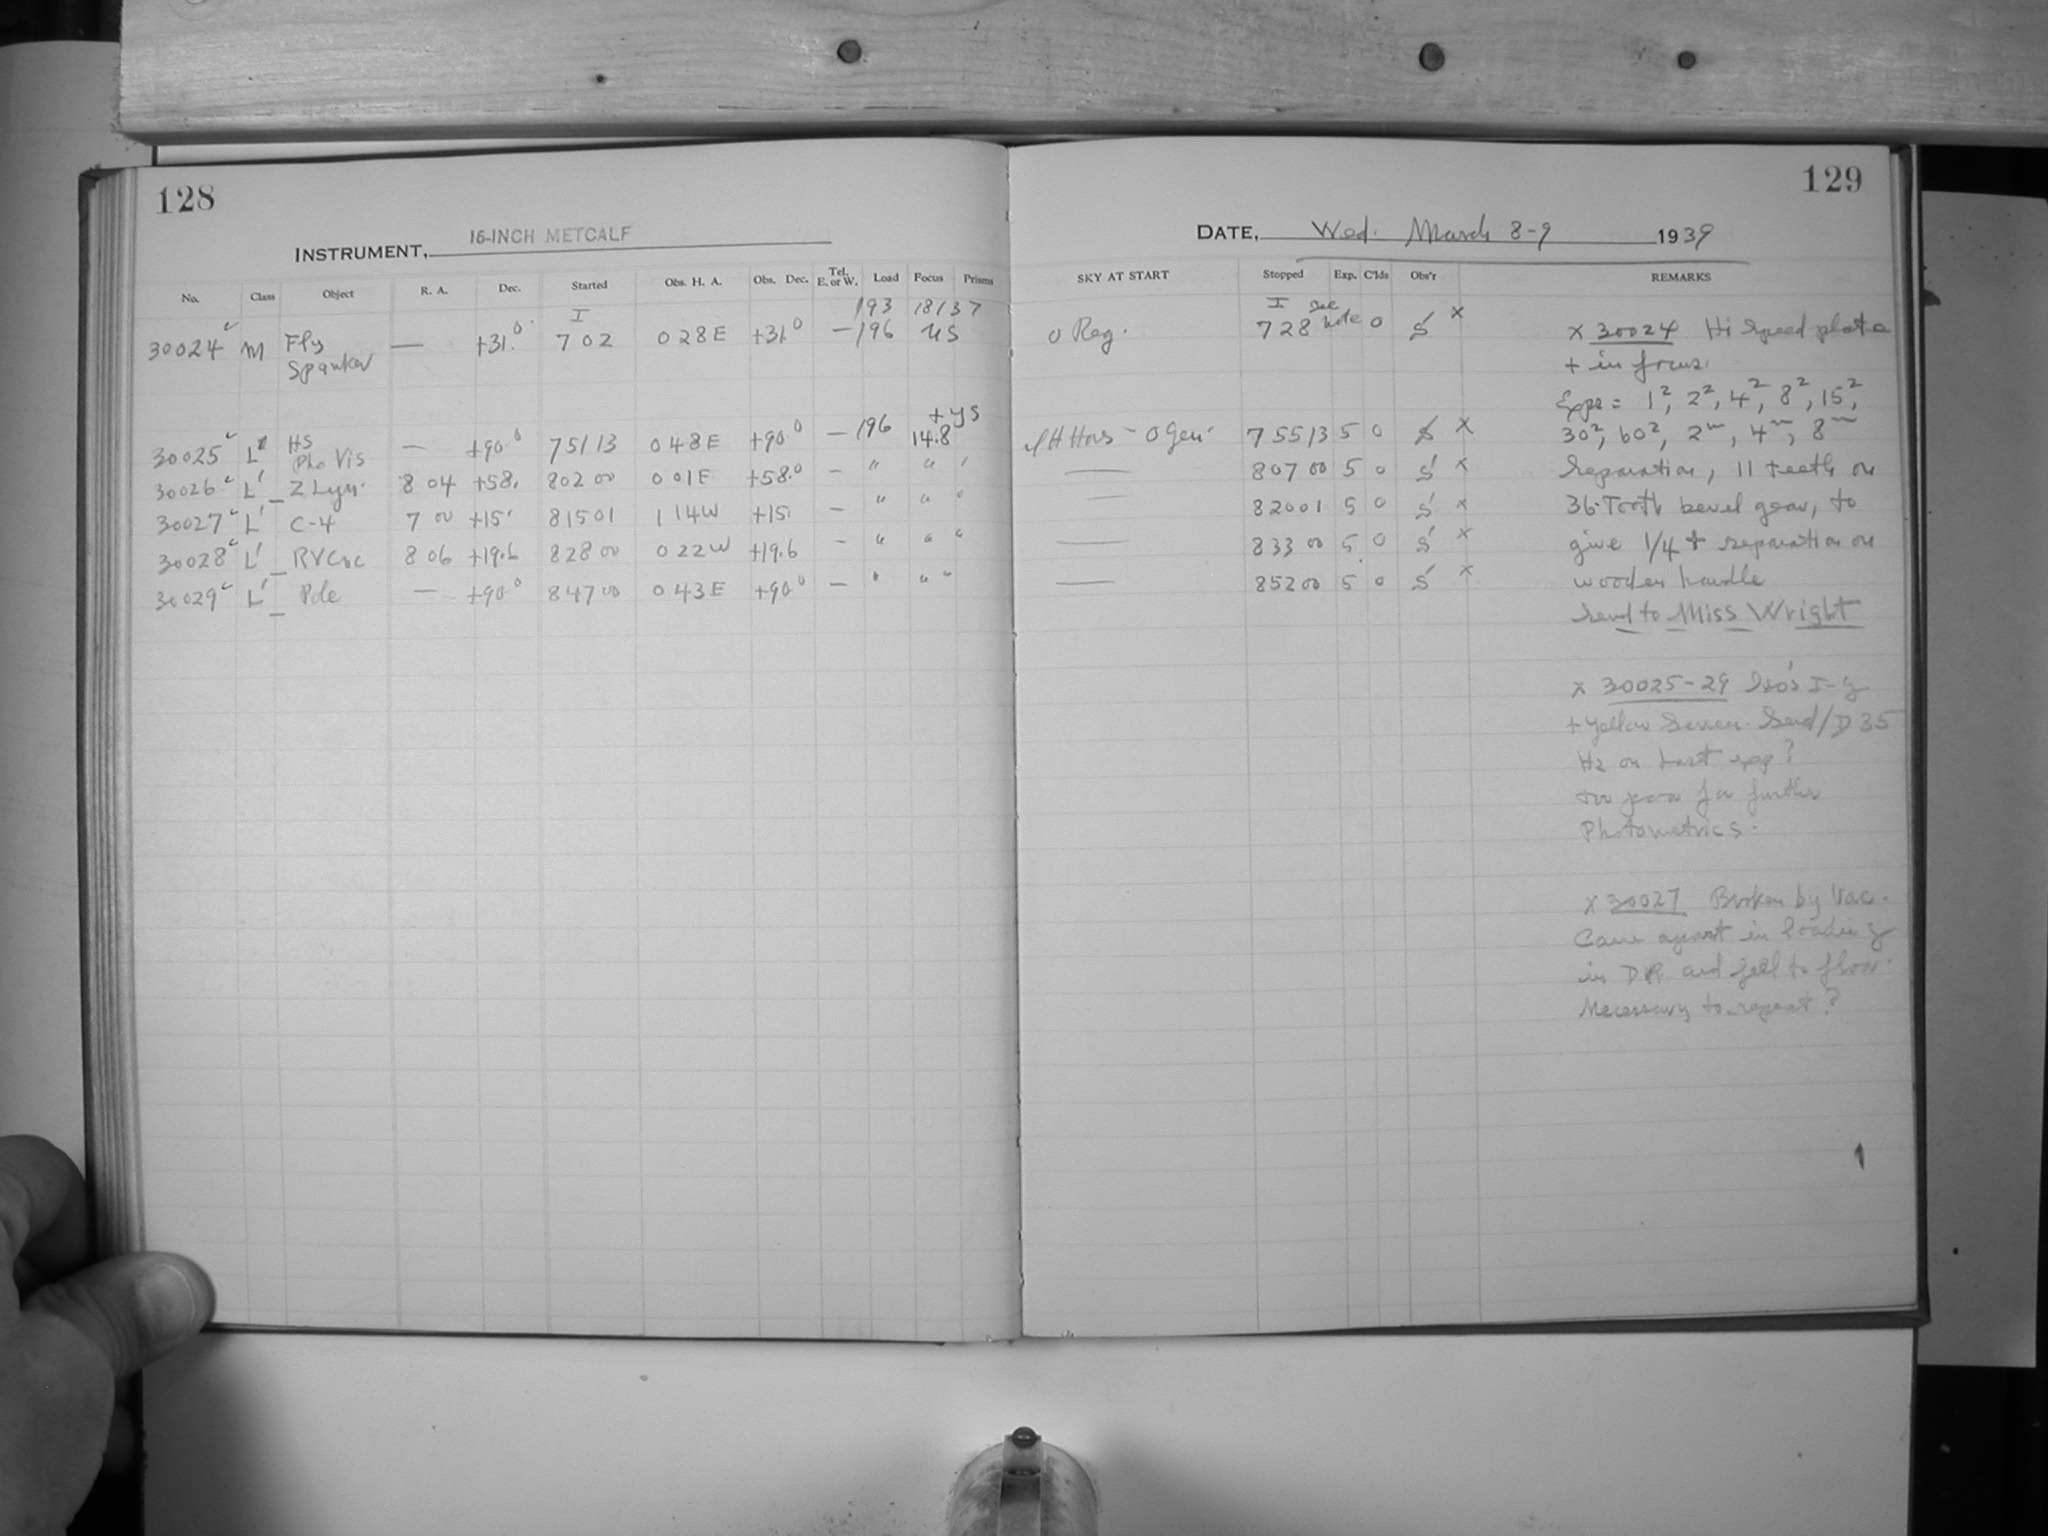 128
INSTRUMENT, 16-INCH METCALF
No. Class Object R. A. Dec. Started Obs. H. A. Obs. Dec. Tel. E. or W. Load Focus Prisms
193 18137
30024 M Fly Spanker — +31.0 I 7 02 0 28 E +31.0 — 196 US
30025 L HS Pho Vis — +90.0 7 51 13 0 48 E +90.0 — 196 +YS 14.8
30026 L' Z Lyn. 8 04 +58. 8 02 00 0 01 E +58.0 — " " "
30027 L' C-4 7 00 +15. 8 15 01 1 14 W +15. — " " "
30028 L' RVCnc 8 06 +19.6 8 28 00 0 22 W +19.6 — " " "
30029 L' Pole — +90.0 8 47 00 0 43 E +90.0 — " " "
129
DATE, Wed. March 8-9 1939
SKY AT START Stopped Exp. C'lds Obs'r REMARKS
0 Reg. I 7 28 see note 0 S x
Hors - 0 Gen. 7 55 13 5 0 S x
— 8 07 00 5 0 S x
— 8 20 01 5 0 S x
— 8 33 00 5 0 S x
— 8 52 00 5 0 S x
x 30024 Hi Speed plate
+ in focus.
Exps = 1s, 2s, 4s, 8s, 15s,
30s, 60s, 2m, 4m, 8m
Separation, 11 teeth on
36-Tooth bevel gear, to
give 1/4 + separation on
wooden handle
Send to Miss Wright
x 30025-29 Iso's I-g
+ yellow Screen. Send/D 35
Hz on last exp?
too poor for further
Photometrics.
x 30027 Broken by Vac.
Came apart in loading
in DR and fell to floor.
Necessary to repeat?